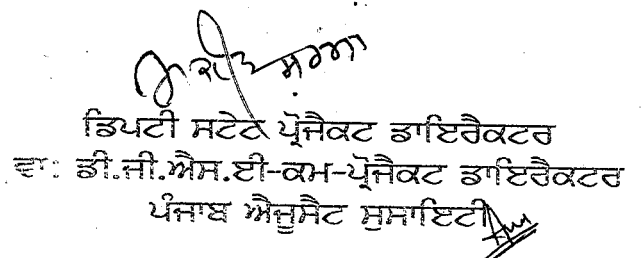 ਡਿਪਟੀ ਸਟੇਟ ਪ੍ਰੋਜੈਕਟ ਡਾਇਰੈਕਟਰ
ਵਾ: ਡੀ.ਜੀ.ਐਸ.ਈ-ਕਮ-ਪ੍ਰੋਜੈਕਟ ਡਾਇਰੈਕਟਰ
ਪੰਜਾਬ ਐਜੂਸੈਟ ਸੁਸਾਇਟੀ